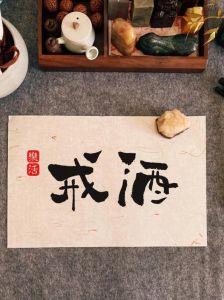 樂活
戒酒